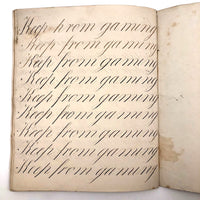 Keep from gaming
Keep from gaming
Keep from gaming
Keep from gaming
Keep from gaming
Keep from gaming
Keep from gaming
Keep from gaming
Keep from gaming